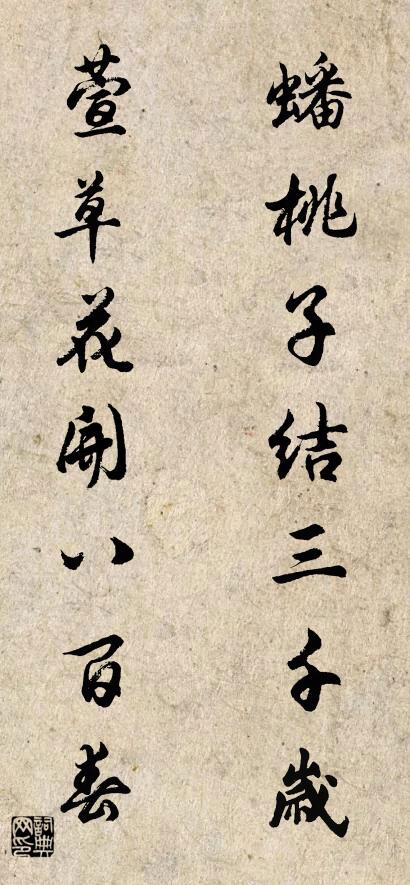 蟠桃子结三千歳
萱草花開八百春
詞典网印